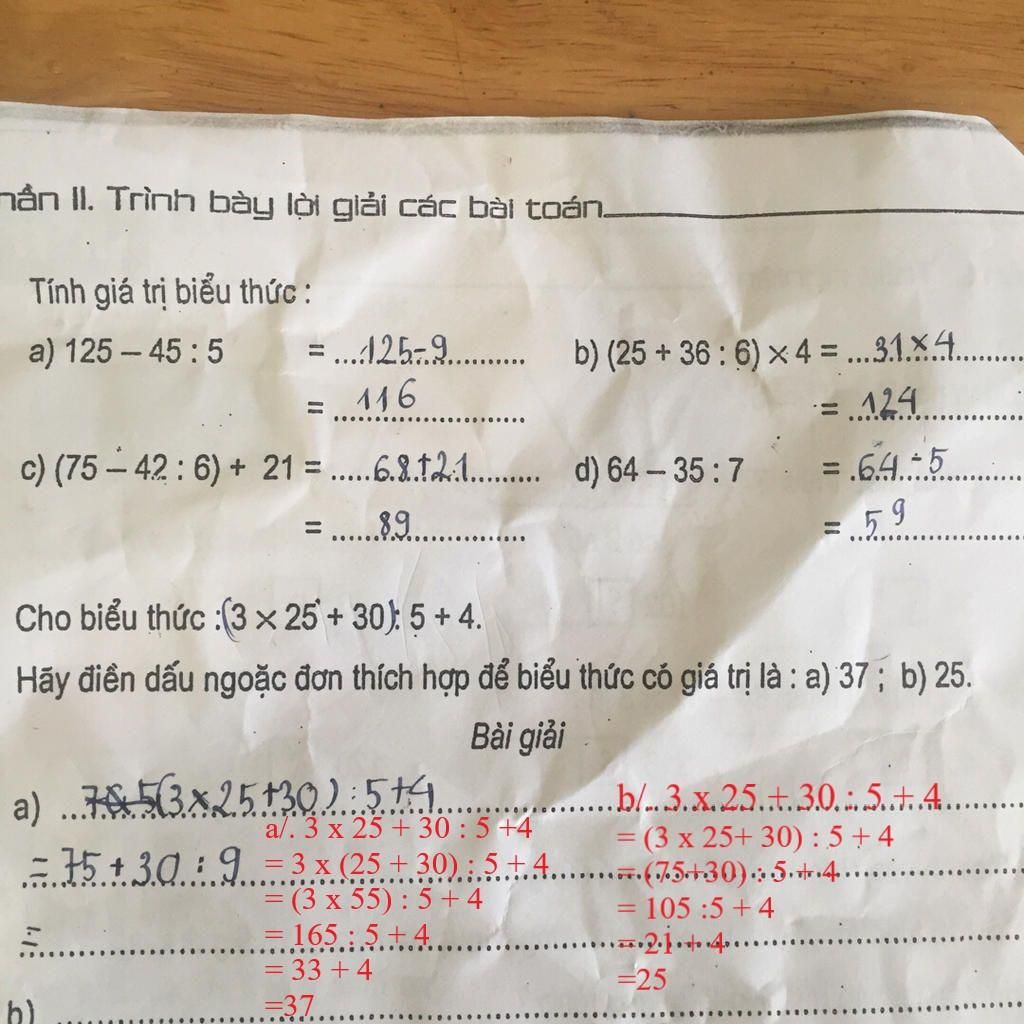 hần II. Trình bày lời giải các bài toán
Tính giá trị biểu thức :
a) 125 – 45 : 5 = 125-9
= 116
b) (25 + 36 : 6) × 4 = 31 × 4
= 124
c) (75 – 42 : 6) + 21 = 68+21
= 89
d) 64 – 35 : 7 = 64 - 5
= 59
Cho biểu thức :(3 × 25 + 30): 5 + 4.
Hãy điền dấu ngoặc đơn thích hợp để biểu thức có giá trị là : a) 37 ; b) 25.
Bài giải
a) (3 x 25+30) : 5+4
= 75 + 30 : 9
=
b)
a/. 3 x 25 + 30 : 5 +4
= 3 x (25 + 30) : 5 + 4
= (3 x 55) : 5 + 4
= 165 : 5 + 4
= 33 + 4
=37
b/. 3 x 25 + 30 : 5 + 4
= (3 x 25+ 30) : 5 + 4
= (75+30) : 5 + 4
= 105 :5 + 4
= 21 + 4
=25